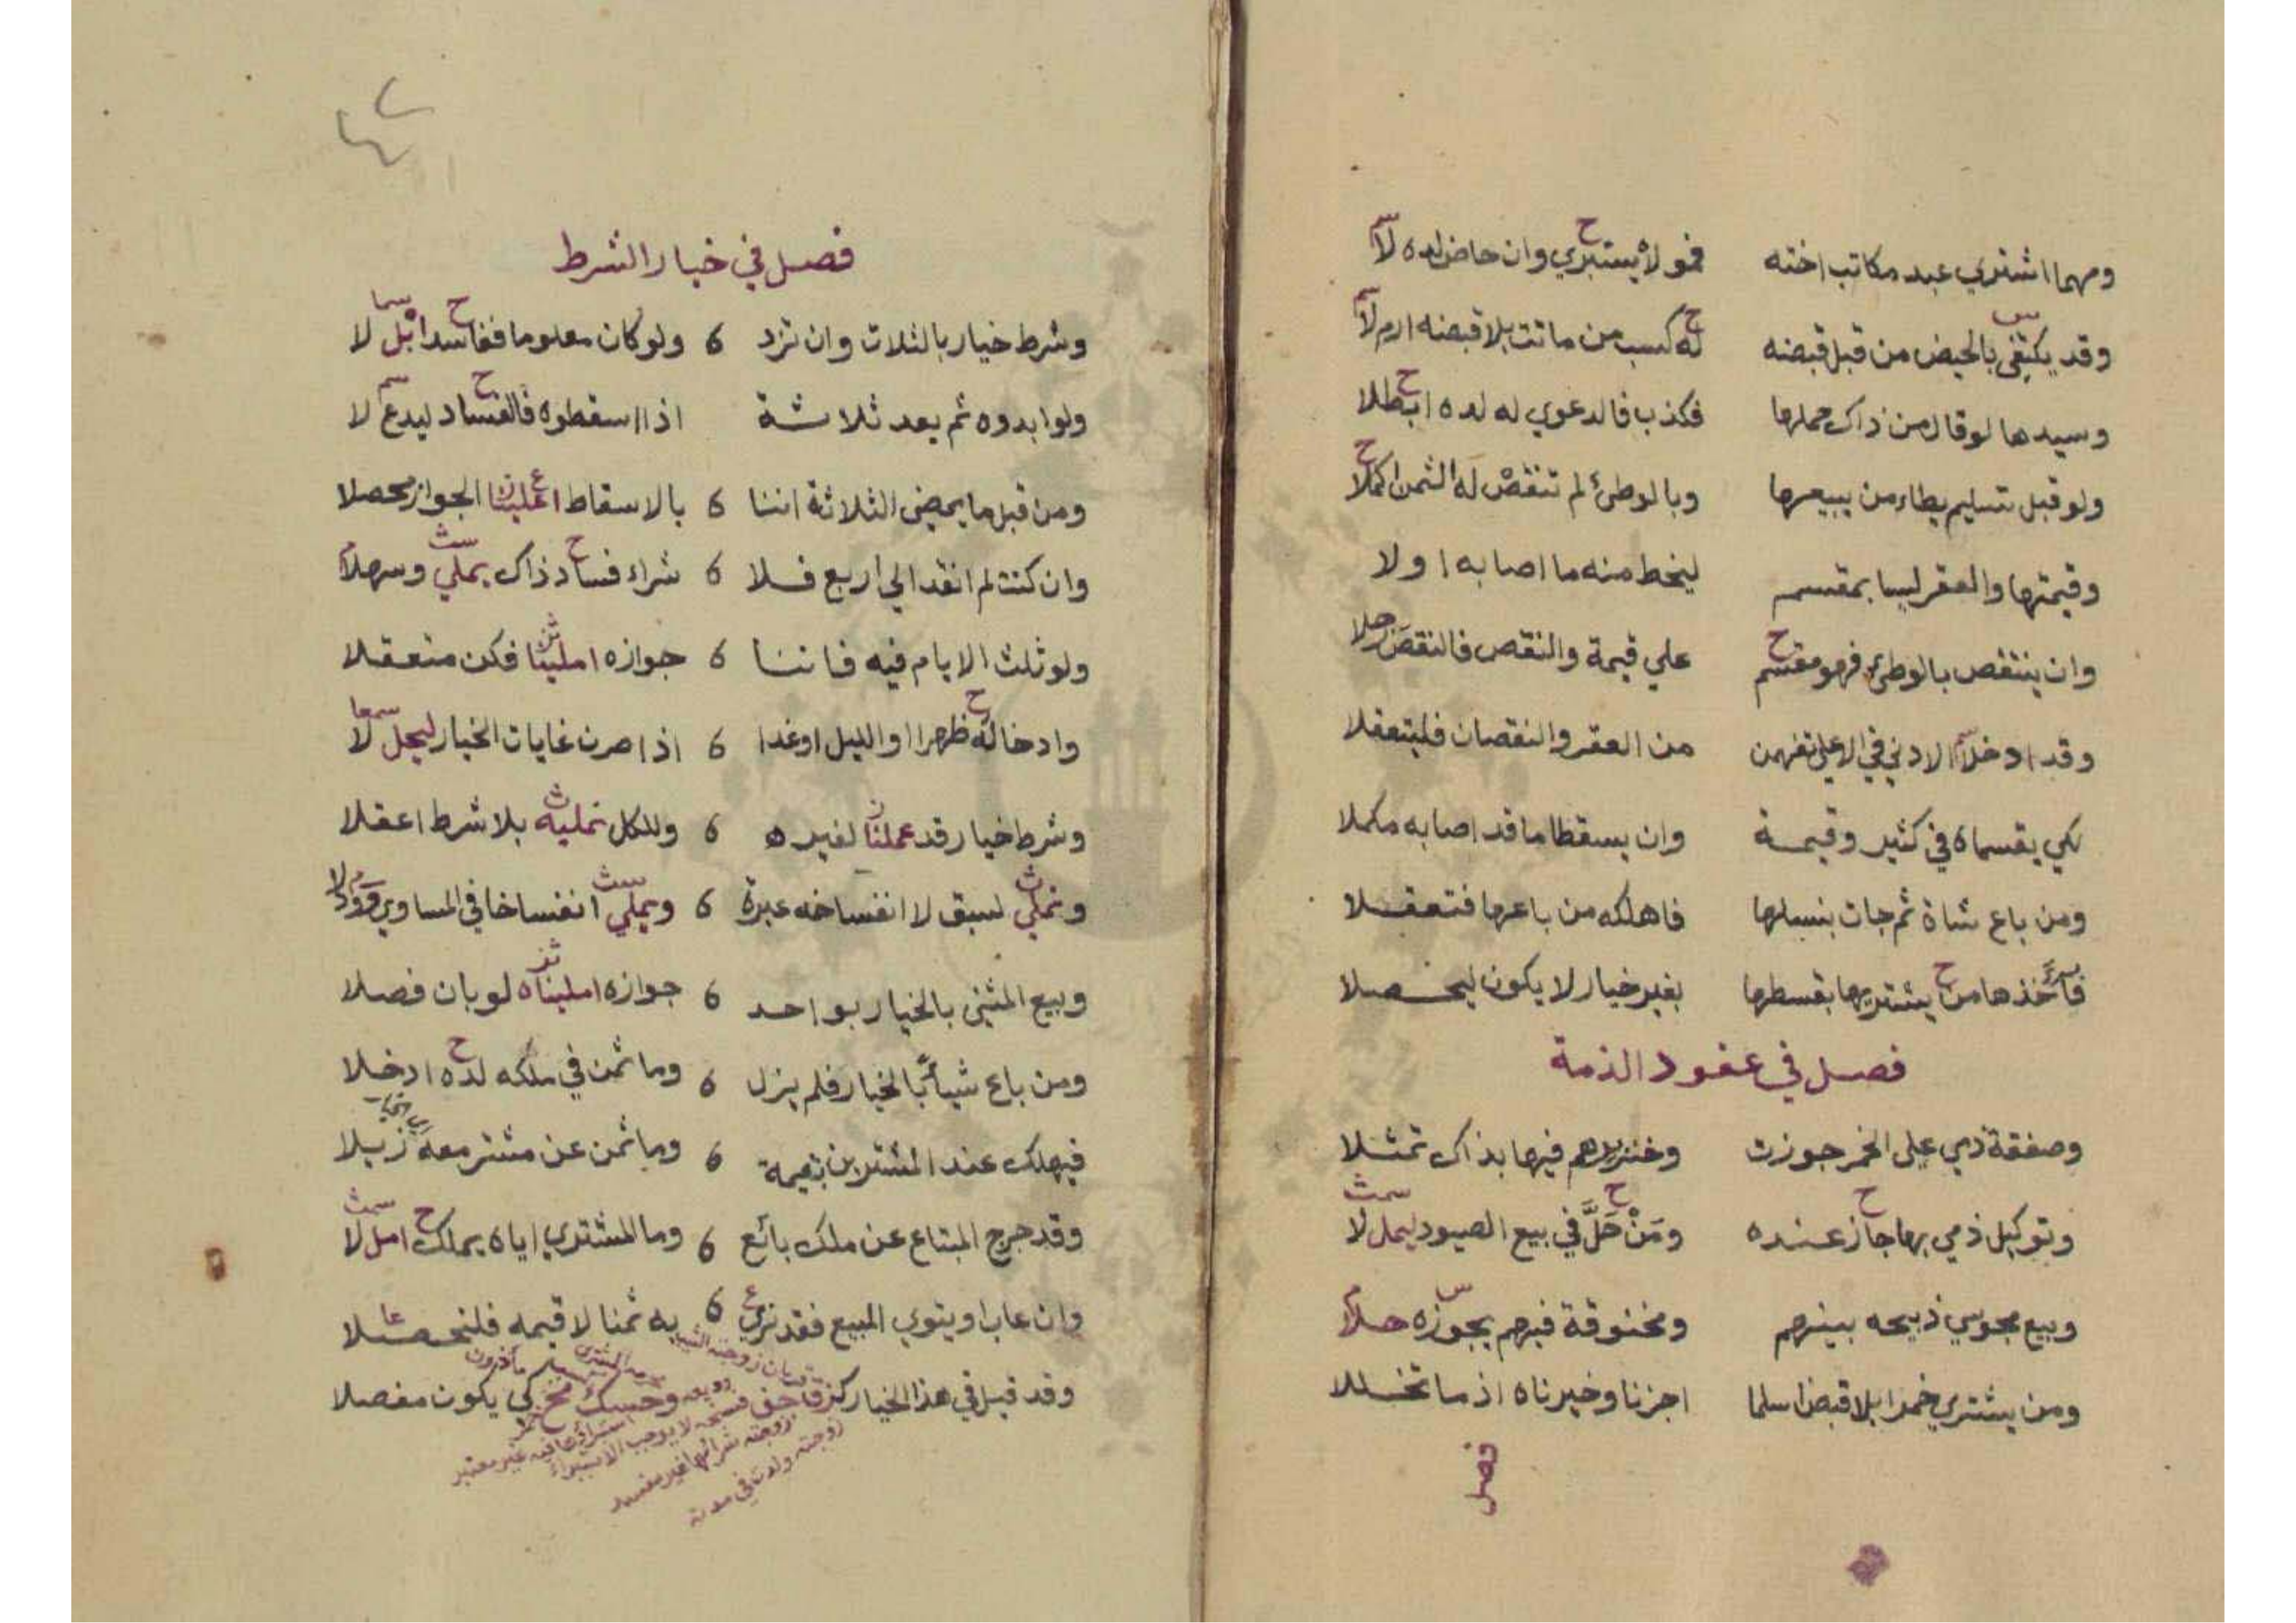 ومهما اشتري عبد مكاتب اخته فمولاه يستبري وان حاض لده لا
وقد يكتفي بالحيض من قبل قبضه له كسب من ماتت بلا قبضه ارم لا
وسيدها لو قال من ذاك حملها فكذب فالدعوي له لده ابطلا
ولو قبل تسليم يطاء من يبيعها وبالوطئ لم تنقص له الثمن اكملا
وقيمتها والعقر ليسا بمقسم ليخط منه ما اصابه اولا
وان ينتقص بالوطئ فهو مقسم علي قيمة والنقص فالنقص
وقد ادخلا الادني في الاعلي تفهمن من العقر والنقصان فليتعقلا
لكي يقسماه في كثير وقيمة وان يسقطا ما قد اصابه مكملا
ومن باع شاة ثم جات بنسلها فاهلكه من باعها فتعقلا
فأخذها من يشتريها بقسطها بغير خيار لا يكون ليحصلا
فصل في عقود الذمة
وصفقة ذمي على الخمر جوزت وخنزيرهم فيها بذاك تمثلا
وتوكيل ذمي بها جاز عنده ومن حل في بيع الصيود ليمل لا
وبيع مجوسي ذبيحه بينهم ومخنوقة فيهم يجوزه حلا
ومن يشتري خمرا بلا قبض اسلما اجزنا وخيرناه اذ ما تخللا
فصل
٤٢
فصل في خيار الشرط
وشرط خيار بالثلاث وان تزد 6 ولو كان معلوما ففاسدا بل لا
ولو ابدوه ثم بعد ثلاثة اذا اسقطوه فالفساد ليدع لا
ومن قبل ما يمضي الثلاثة اننا 6 بالاسقاط اعملينا الجواز محصلا
وان كنت لم انقد الي اربع فلا 6 شراء فساد ذاك يملي وسهلا
ولو ثلث الايام فيه فاننا 6 جوازه املينا فكن متعقلا
وادخاله ظهرا او الليل او غدا 6 اذا صرن غايات الخيار ليجل لا
وشرط خيار قد عملنا لغيره 6 وللكل نمليه بلا شرط اعقلا
ونملي لسبق لا انفساخه عبرة 6 ويملي انفساخا في المساوي
وبيع المثني بالخيار بواحد 6 جوازه امليناه لو بان فصلا
ومن باع شيأ بالخيار فلم يزل 6 وما ثمن في ملكه لده ادخلا
فيهلك عند المشترين بقيمة 6 وما ثمن عن مشتر معه زيلا
وقد خرج المبتاع عن ملك بائع 6 وما المشتري اياه يملك امل لا
وان عاب او يتوي المبيع فقد نري 6 به ثمنا لا قيمه فلنحصلا
وقد قيل في هذا الخيار كي يكون مفصلا
زوجته شرائها غير مفسد
زوجته ولدت في مدته